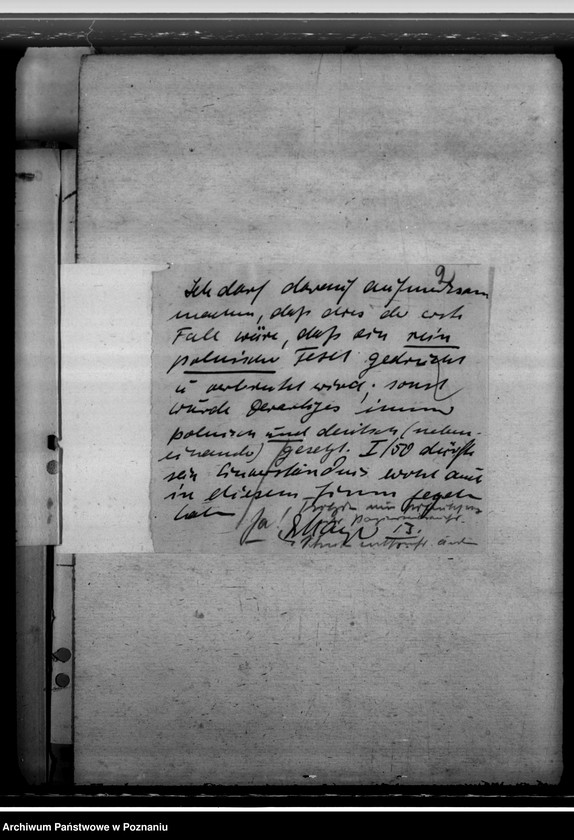 Ich darf darauf aufmerksam
machen, daß dies der erste
Fall wäre, daß ein rein
polnischer Text gedruckt
u verbreitet wird; sonst
würde Derartiges immer
polnisch und deutsch (neben-
einander) gesetzt. I/50 dürfte
sein Einverständnis wohl auch
in diesem Sinne gegeben
haben
Ja!
13.
Archiwum Państwowe w Poznaniu